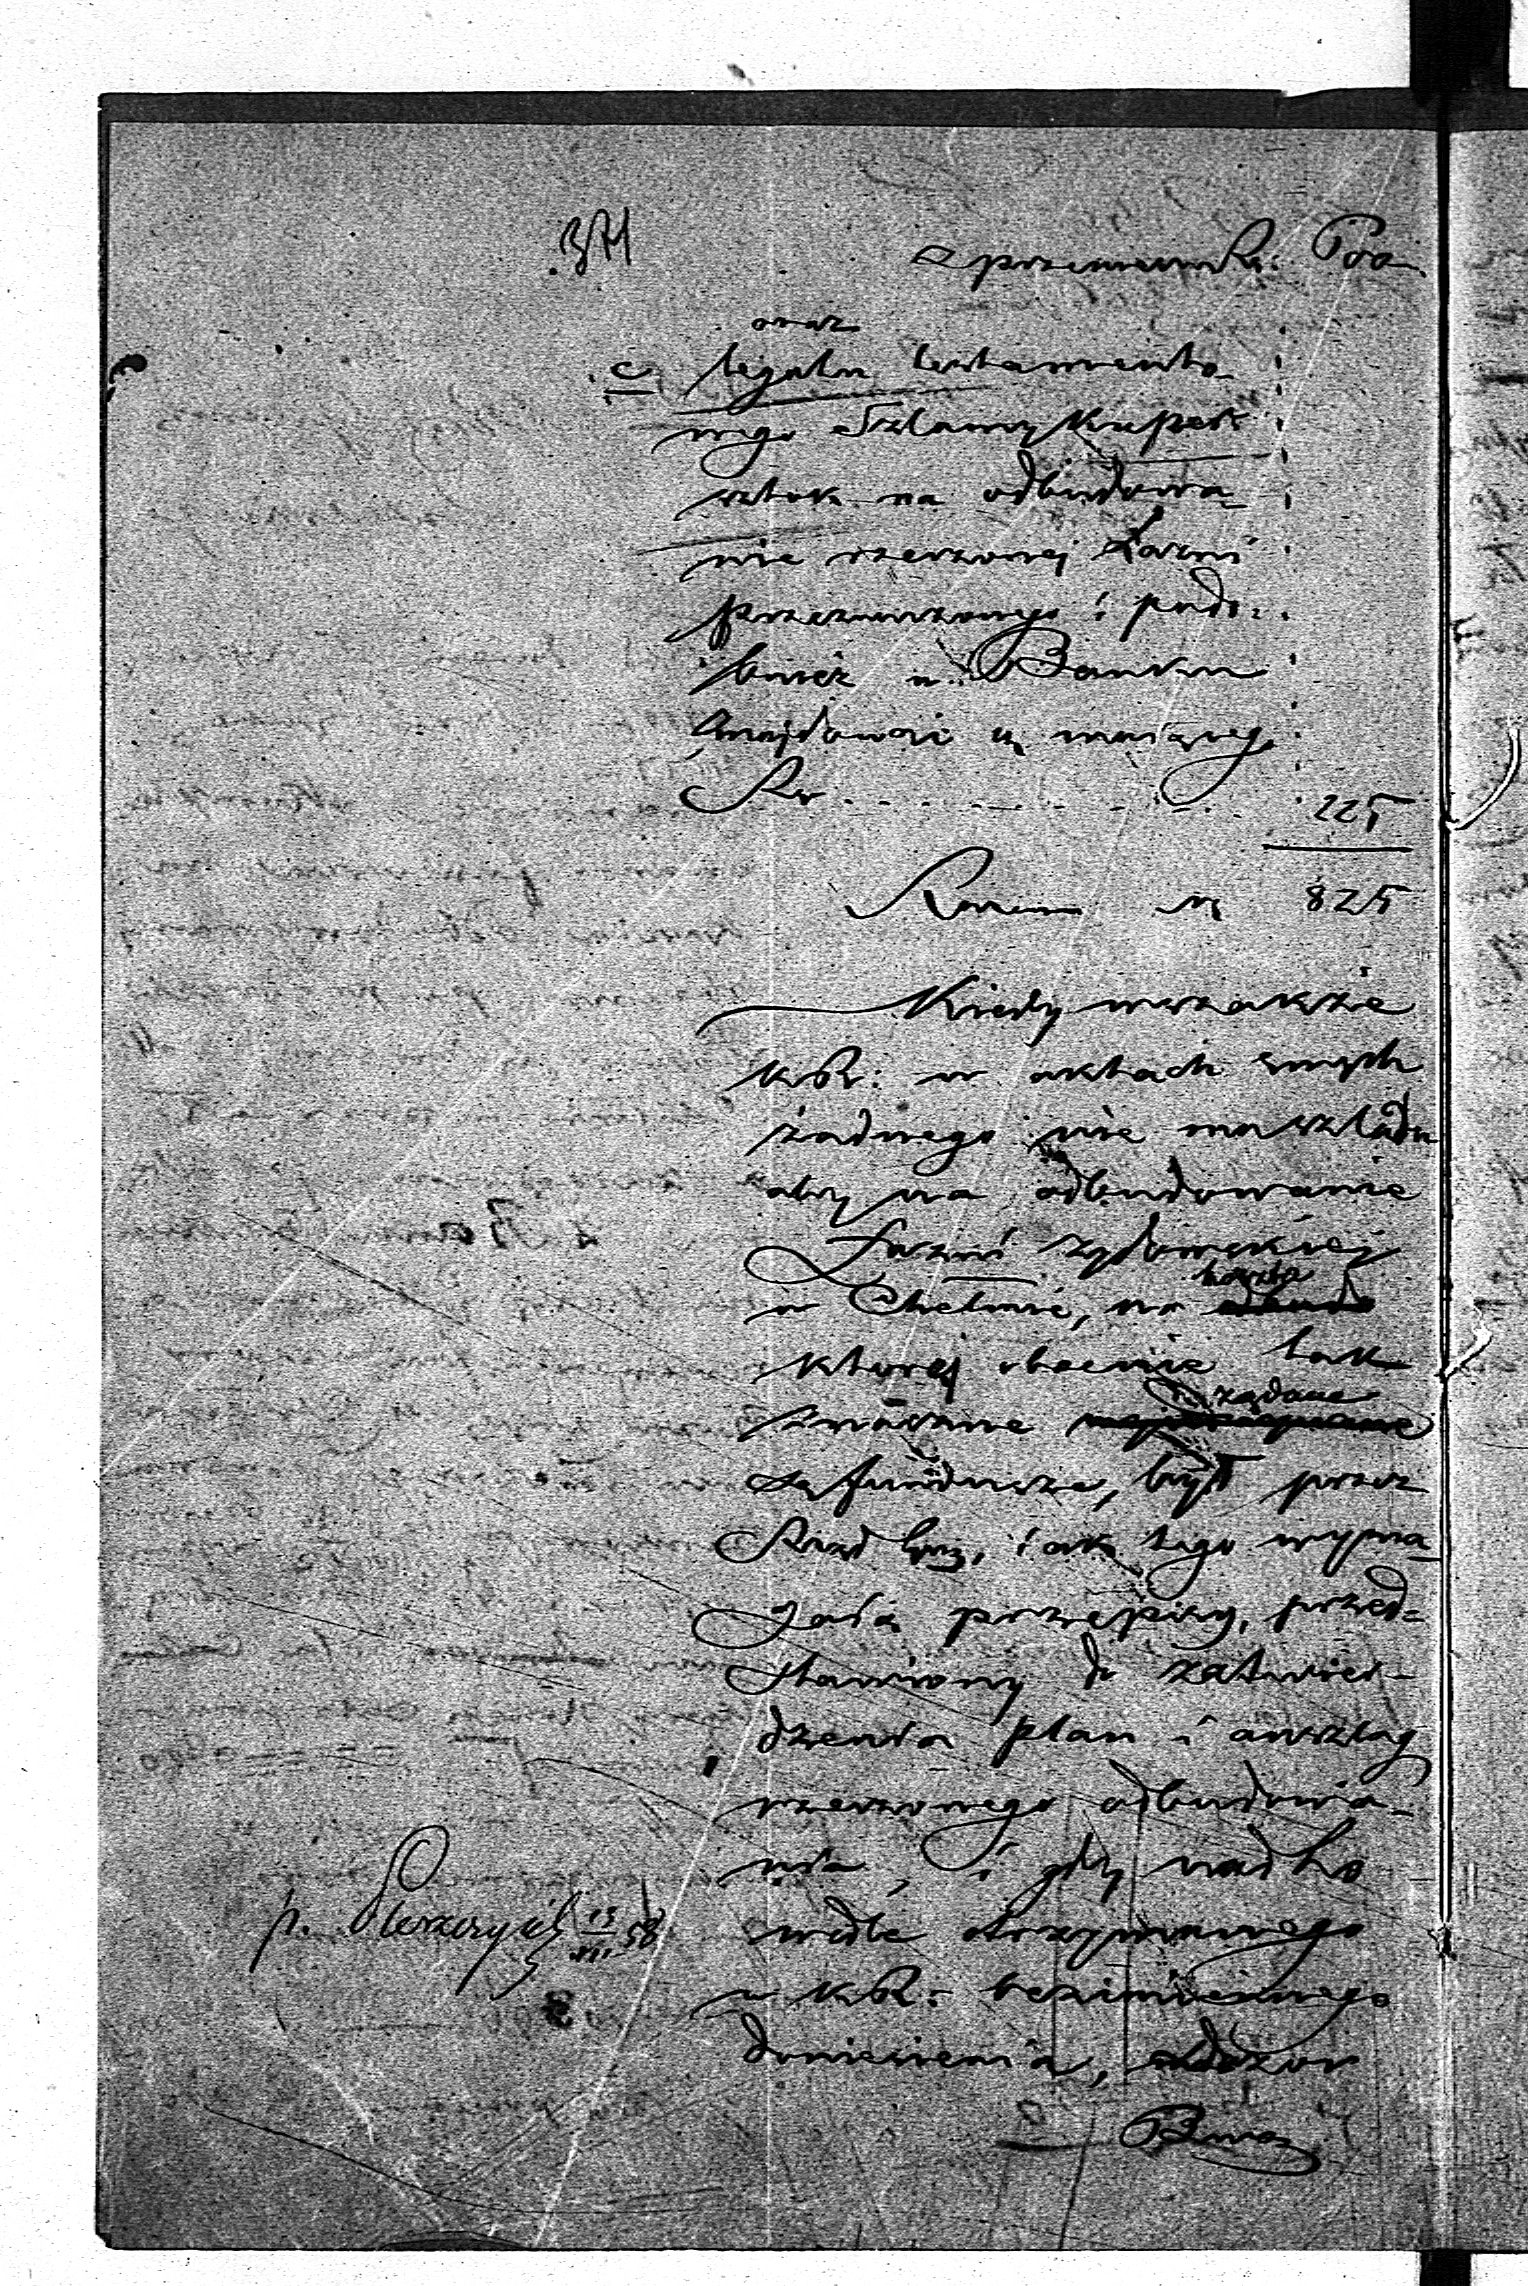 371
z przeniesienia: 600
oraz
c legatu testamento-
wego Szlamy Kuper-
sztok na odbudowa-
nie rzeczonej Łaźni
przeznaczonego i podo-
bnież w Banku
znajdować się mającego
Rs 225
Razem rs 825
Kiedy wszakże
w aktach swych
żadnego nie ma śladu
aby na odbudowanie
Łaźni żydowskiej
w Chełmie, na koszta
której obecnie tak
znaczne żądane
są fundusze, był przez
Rząd Gub, iak tego wyma-
gaią przepisy, przed-
stawiony do zatwier-
dzenia plan i anszlag
rzeczonego odbudowa-
nia, i gdy nadto
wedle otrzymanego
w bezimiennego
doniesienia, dozór
Bożn
p. 13/VII 58